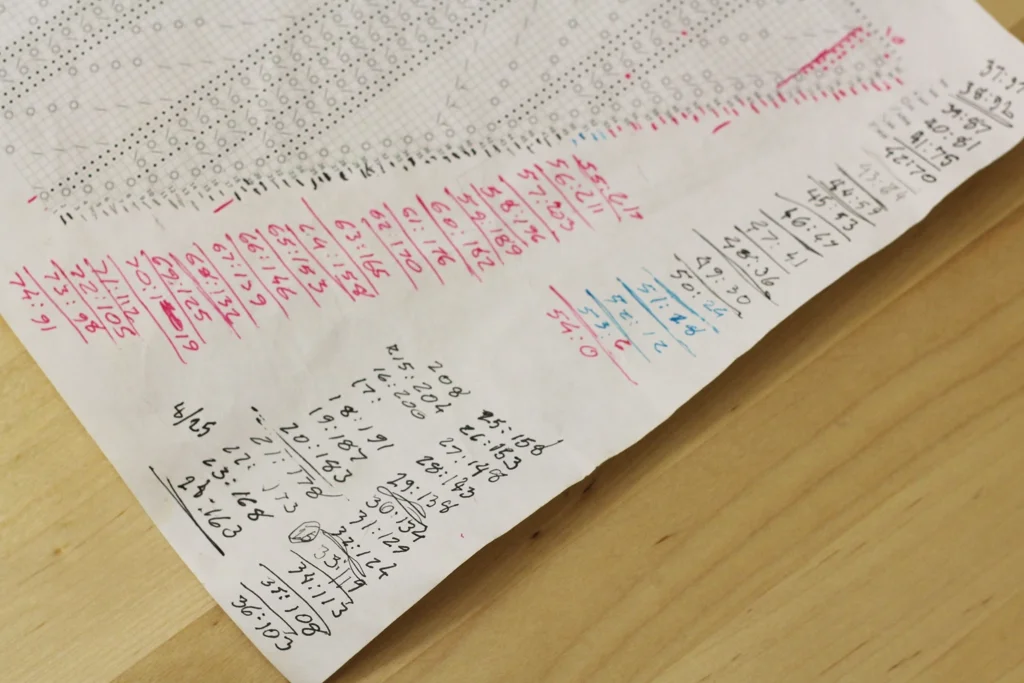 55:217
56:211
57:203
58:196
59:189
60:182
61:176
62:170
63:165
64:158
65:153
66:146
67:139
68:133
69:125
70:119
71:112
72:105
73:98
74:91
38:92
39:87
40:81
41:75
42:70
43:64
44:59
45:53
46:47
47:41
48:36
49:30
50:24
51:18
52:12
53:6
54:0
208
15:204
16:200
17:
18:191
19:187
20:183
21:178
22:173
23:168
24:163
25:158
26:153
27:148
28:143
29:138
30:134
31:129
32:124
33:119
34:113
35:108
36:103